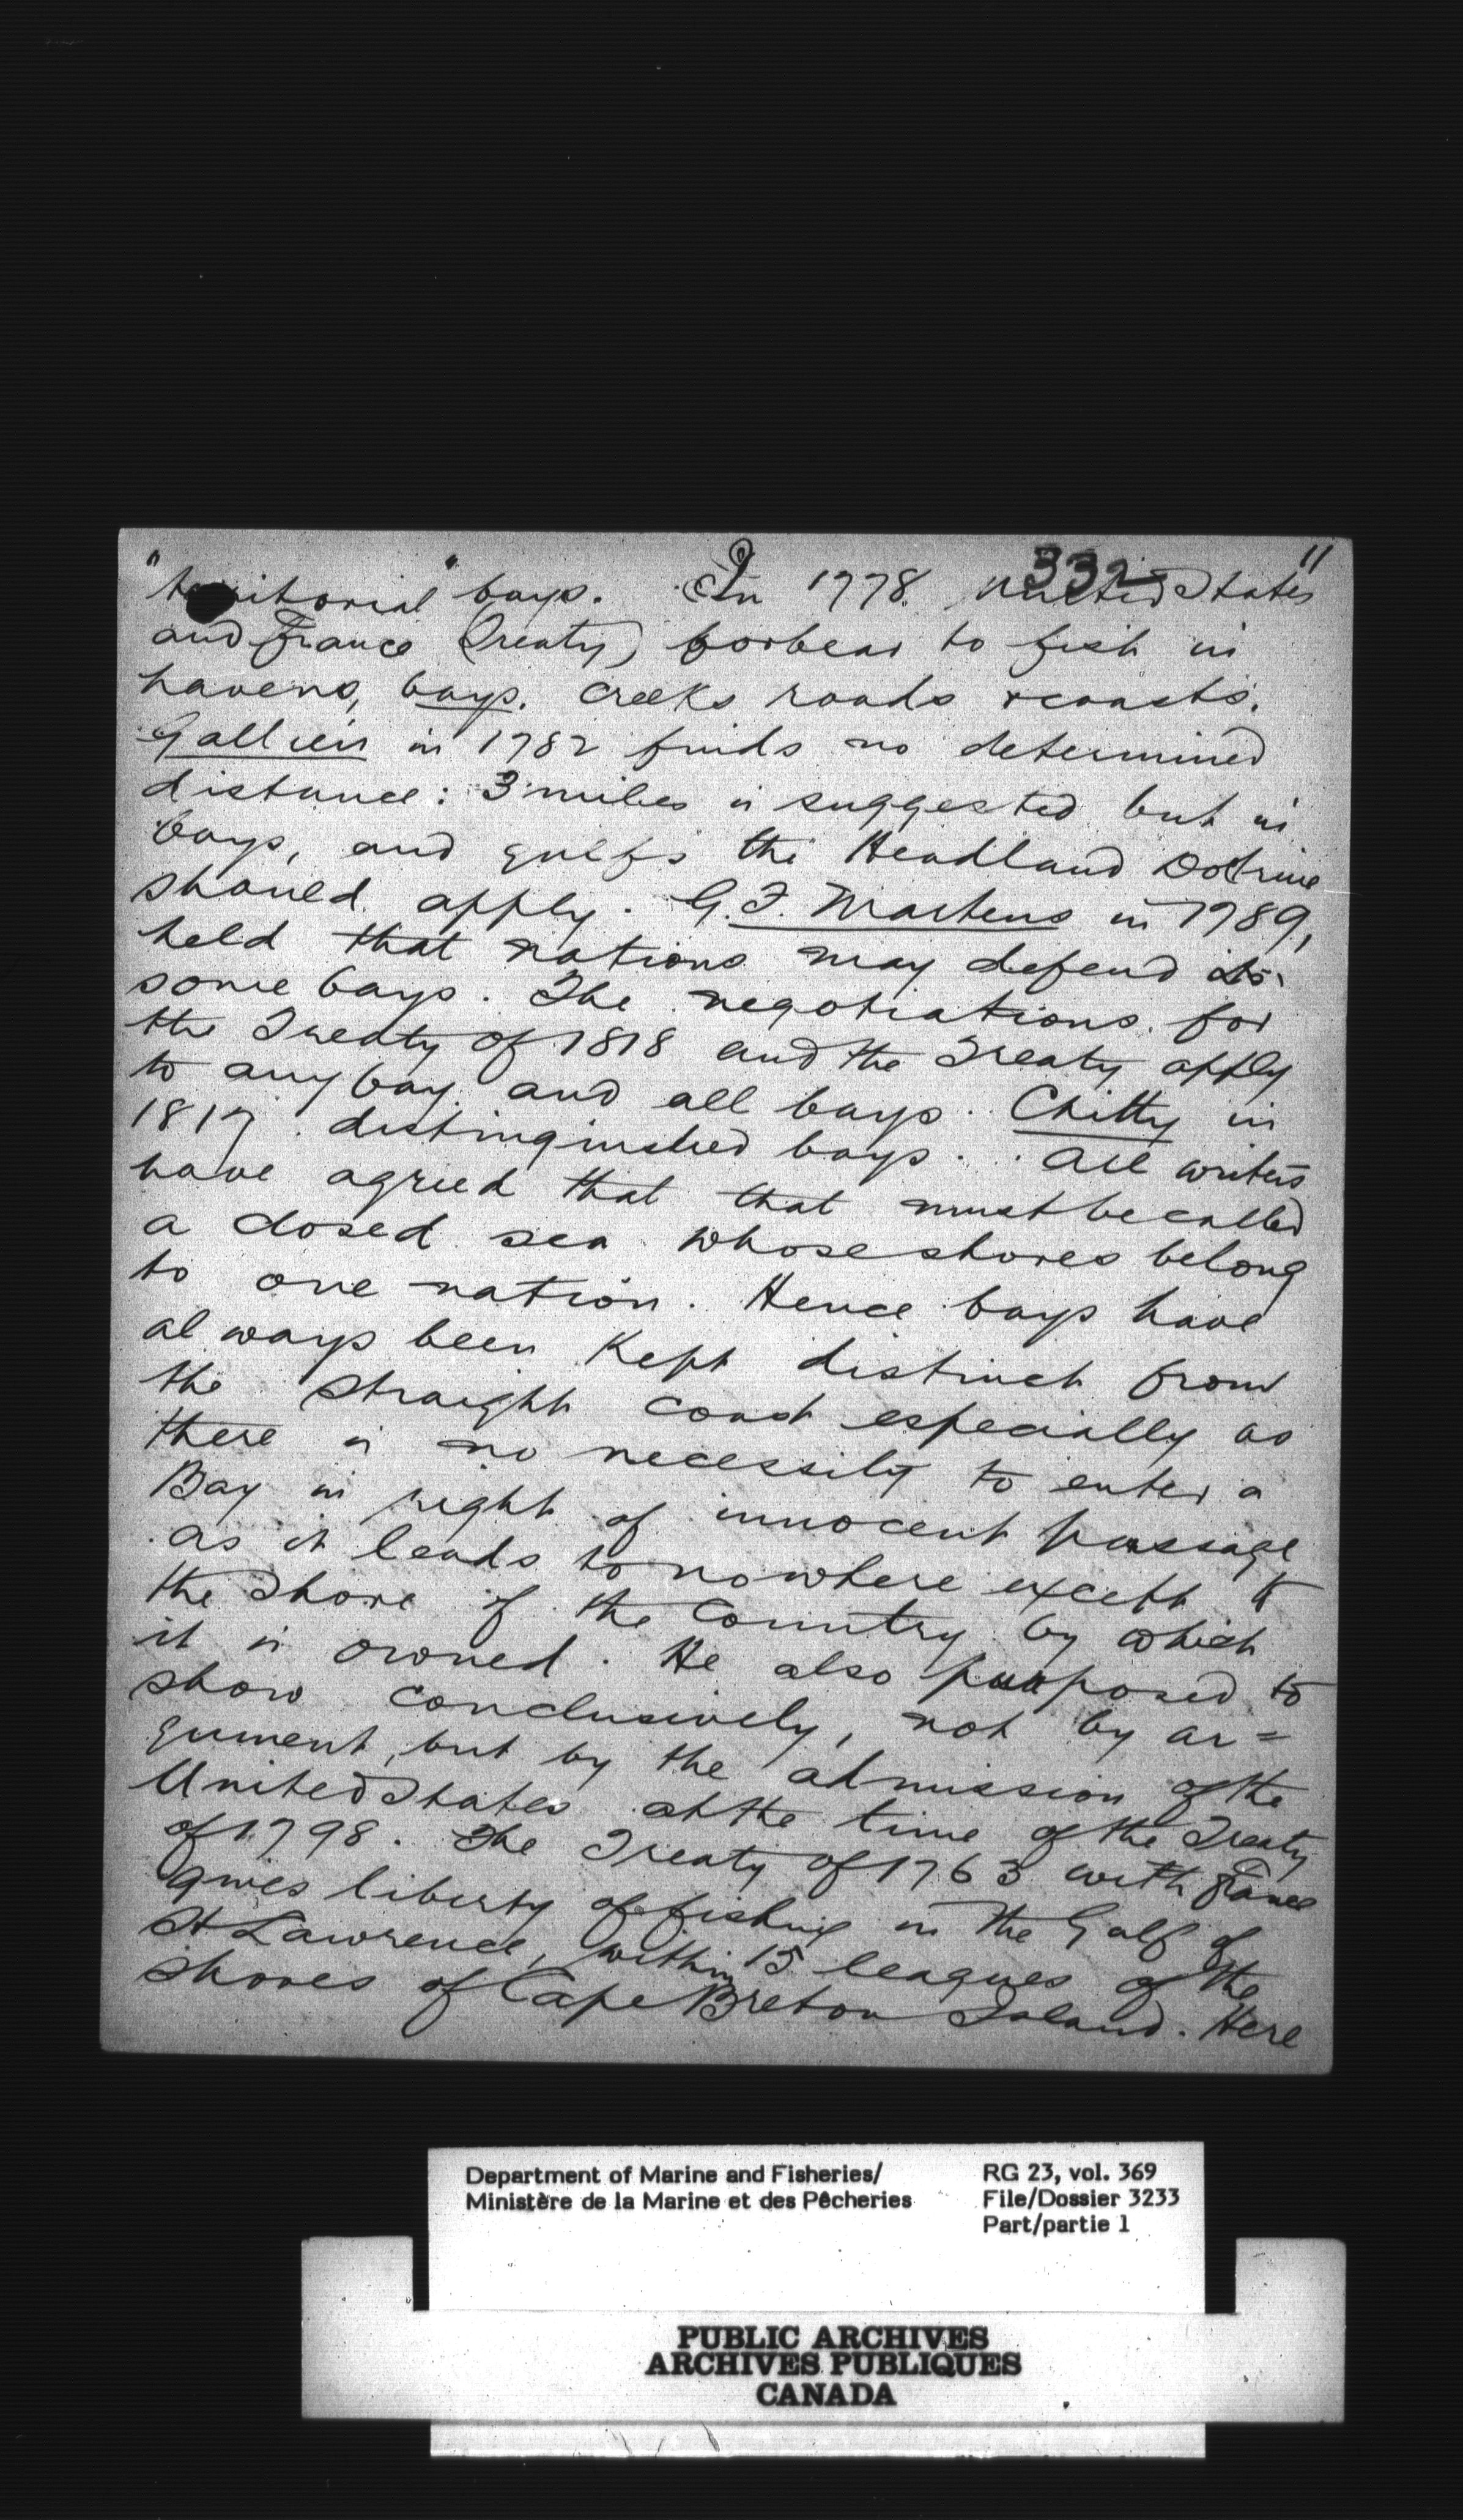 2 332 11
"territorial" bays. In 1778 United States
and France (Treaty) forbear to fish in
havens, bays. creeks roads & coasts.
Gallien in 1782 finds no determined
distance: 3 miles is suggested but in
bays, and gulfs the Headland Doctrine
should apply. G. F. Martens in 1789,
held that nations may defend
some bays. The negotiations for
the Treaty of 1818 and the Treaty apply
to any bay and all bays. Chitty in
1817 distinguished bays. All writers
have agreed that that must be called
a closed sea whose shores belong
to one nation. Hence bays have
always been kept distinct from
the straight coast especially as
there is no necessity to enter a
Bay in right of innocent passage
as it leads to nowhere except to
the Shore of the Country by which
it is owned. He also purposed to
show conclusively, not by ar=
gument, but by the admission of the
United States at the time of the Treaty
of 1798. The Treaty of 1763 with France
gives liberty of fishing in the Gulf of
St Lawrence, within 15 leagues of the
shores of Cape Breton Island. Here
Department of Marine and Fisheries/
Ministère de la Marine et des Pêcheries
RG 23, vol. 369
File/Dossier 3233
Part/partie 1
PUBLIC ARCHIVES
ARCHIVES PUBLIQUES
CANADA